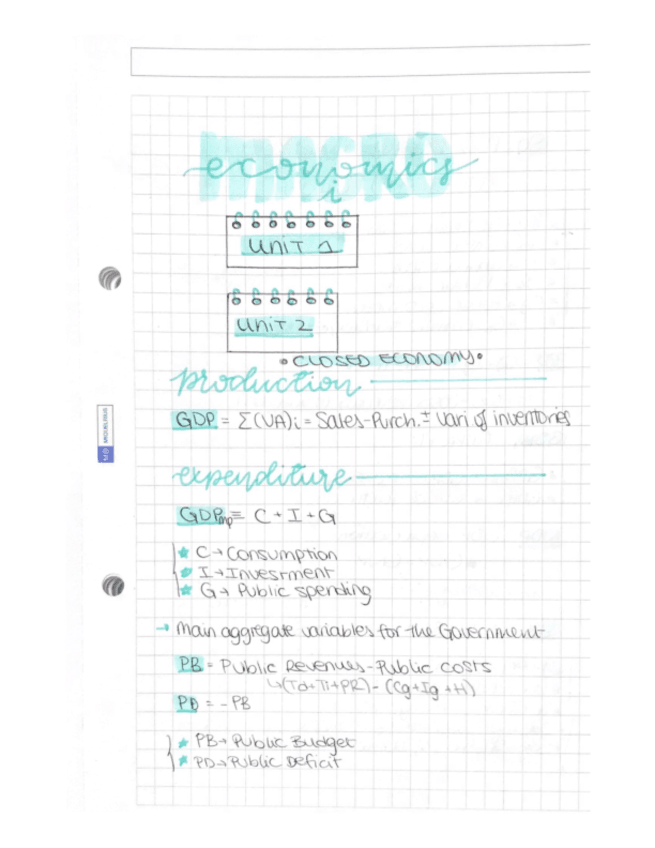 MACRO
economics
i
UNIT 1
UNIT 2
• CLOSED ECONOMY •
production
GDP = Σ(VA)i = Sales-Purch. ± vari of inventories
expenditure
GDPmp = C + I + G
★ C → Consumption
★ I → Investment
★ G → Public spending
→ Main aggregate variables for the Government
PB = Public Revenues - Public costs
↳ (Td+Ti+PR) - (Cg+Ig+H)
PD = - PB
★ PB → Public Budget
★ PD → Public Deficit
MIQUELRIUS